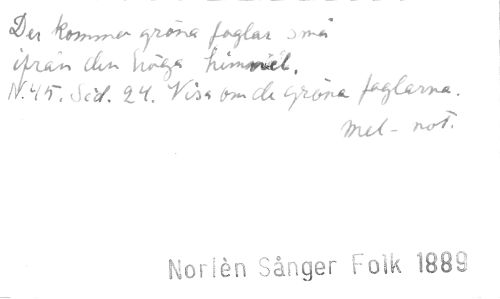 Der kommer gröna foglar små
ifrån den höga himmel.
N. 45. Sid. 24. Visa om de gröna foglarna.
mel-not.
Norlèn Sånger Folk 1889